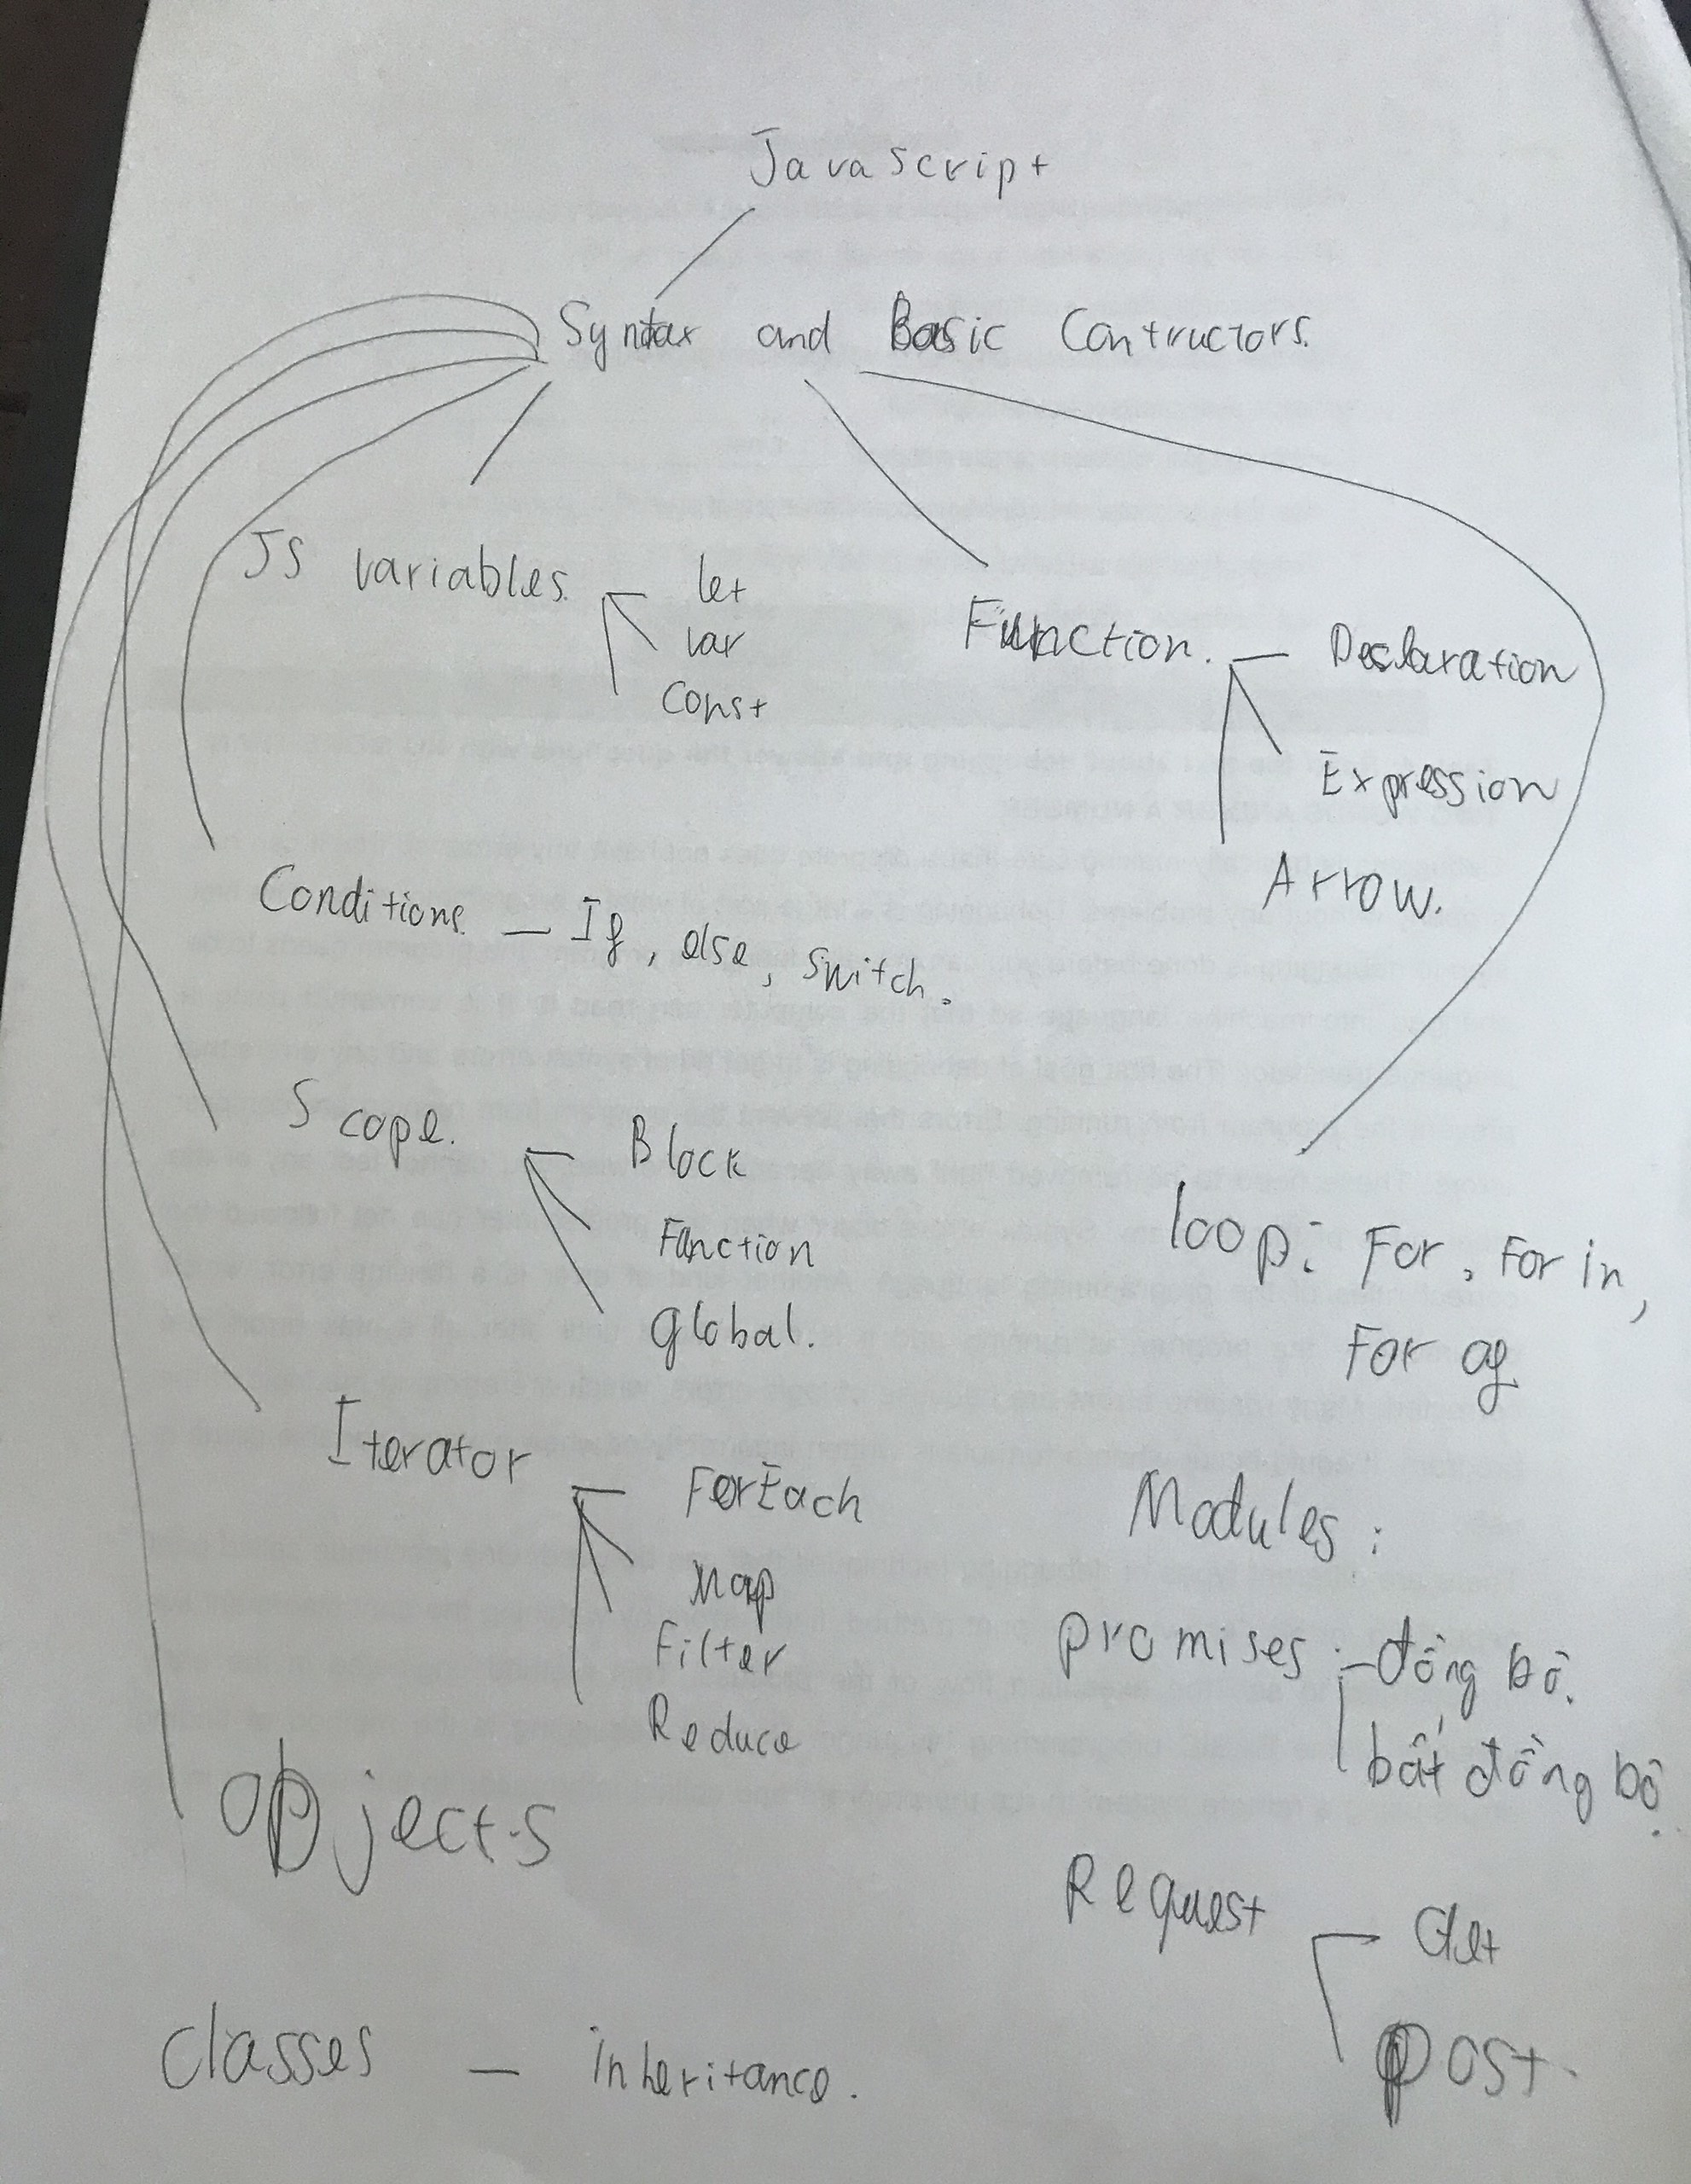 Javascript
Syntax and Basic Contructors.
JS variables.
let
var
const
Function.
Declaration
Expression
Arrow.
Conditions – If, else, switch.
Scope.
Block
Function
global.
loop: For, For in,
For of
Iterator
ForEach
Map
Filter
Reduce
Modules:
promises: – đồng bộ.
bất đồng bộ
Objects
Request
Get
post.
classes – inheritance.